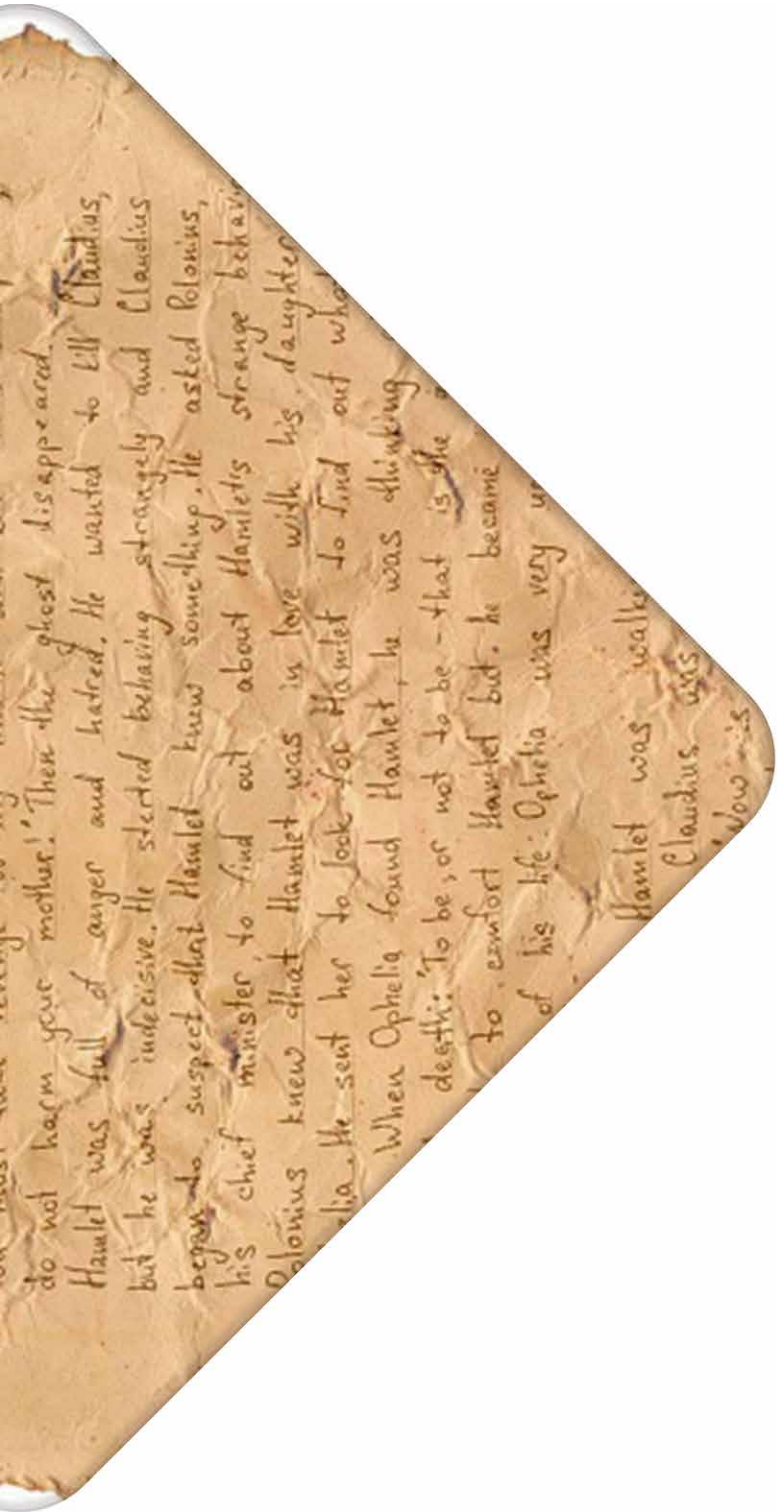 do not harm your mother!' Then the ghost disappeared.
Hamlet was full of anger and hatred. He wanted to kill Claudius,
but he was indecisive. He sterted behaving strangely and Claudius
began to suspect that Hamlet knew something. He asked Polonius,
his chief minister, to find out about Hamlet's strange behavi
Polonius knew that Hamlet was in love with his daughter
elia. He sent her to look for Hamlet to find out what
When Ophelia found Hamlet, he was thinking
death: 'To be, or not to be - that is the
to comfort Hamlet but he became
of his life. Ophelia was very u
Hamlet was walki
Claudius was
'Now is